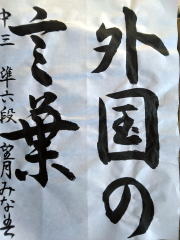 外国の
言葉
中三 準六段 望月みな美